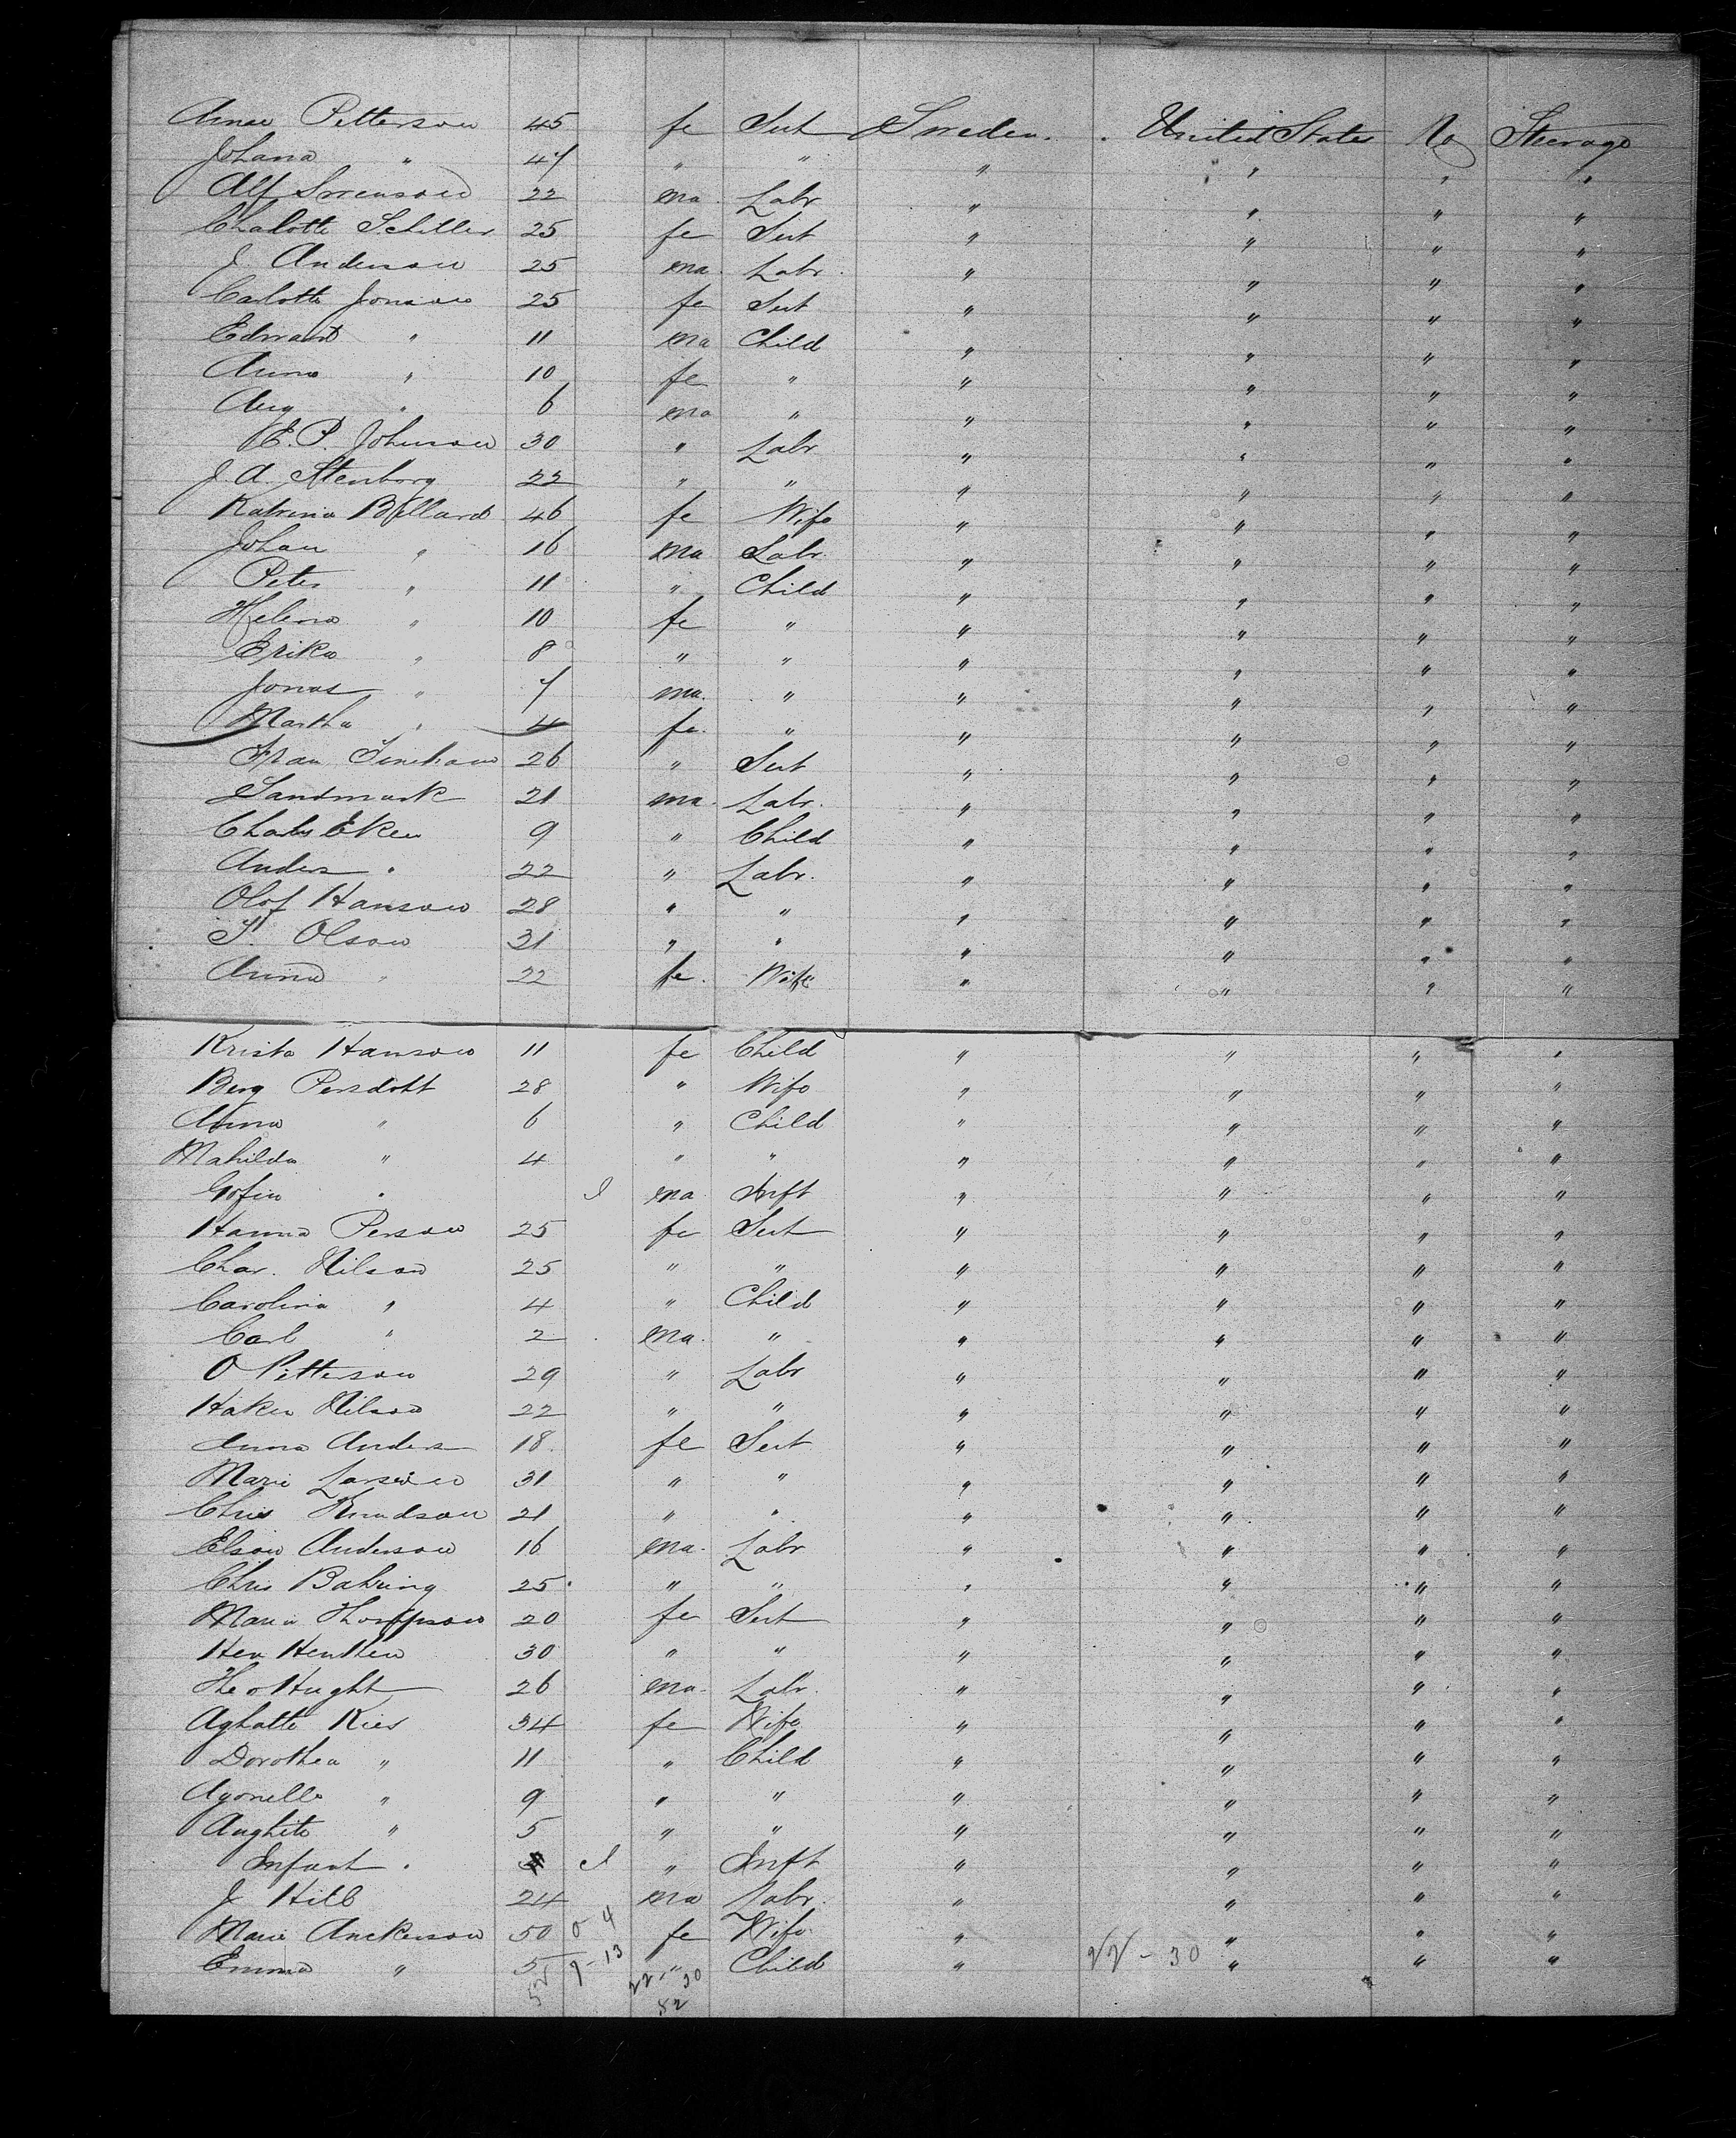 Anna Petterson 45 fe Sert Sweden. United States No Steerage
Johana " 47 " " " " " "
Alf Swenson 22 ma. Labr " " " "
Charlotte Schiller 25 fe Sert " " " "
J Anderson 25 ma. Labr. " " " "
Carlotte Jonson 25 fe Sert " " " "
Edward " 11 ma Child " " " "
Anna " 10 fe " " " " "
Aug " 6 ma " " " " "
E. P. Johnson 30 " Labr " " " "
J. A. Stenborg 22 " " " " " "
Katrina Billard 46 fe Wife " " " "
Johan " 16 ma Labr. " " " "
Peter " 11 " Child " " " "
Helena " 10 fe " " " " "
Erika " 8 " " " " " "
Jonas " 7 ma. " " " " "
Martha " 4 fe. " " " " "
Fran 26 " Sert " " " "
Sandmark 21 ma. Labr. " " " "
Charls Eken 9 " Child " " " "
Anders " 22 " Labr. " " " "
Olof Hanson 28 " " " " " "
Olson 31 " " " " " "
Anna " 22 fe. Wife " " " "
Krista Hanson 11 fe Child " " " "
Berg Persdott 28 " Wife " " " "
Anna " 6 " Child " " " "
Mahilda " 4 " " " " " "
Gofin " 1 ma Inft " " " "
Hanna Person 25 fe Sert " " " "
Char. Nilson 25 " " " " " "
Carolina " 4 " Child " " " "
Carl " 2 ma. " " " " "
O Petterson 29 " Labr " " " "
Haken Nilson 22 " " " " " "
Anna Anders 18. fe Sert " " " "
Marie Larson 31 " " " " " "
Chris Knudson 21 " " " " " "
Elson Anderson 16 ma. Labr " " " "
Chris Bahring 25 " " " " " "
Maria Thompson 20 fe Sert " " " "
Hen Henthen 30 " " " " " "
Theo Hught 26 ma. Labr. " " " "
Aghatte Kies 34 fe Wife " " " "
Dorothea " 11 " Child " " " "
Agonelle " 9 " " " " " "
Anghite " 5 " " " " " "
Infant " 1 " Inft " " " "
J Hill 24 ma Labr. " " " "
Marie Anckerson 50 0 4 fe Wife " " " "
Emma " 5 9-13 " Child " 22-30 " " "
52 22-30
52